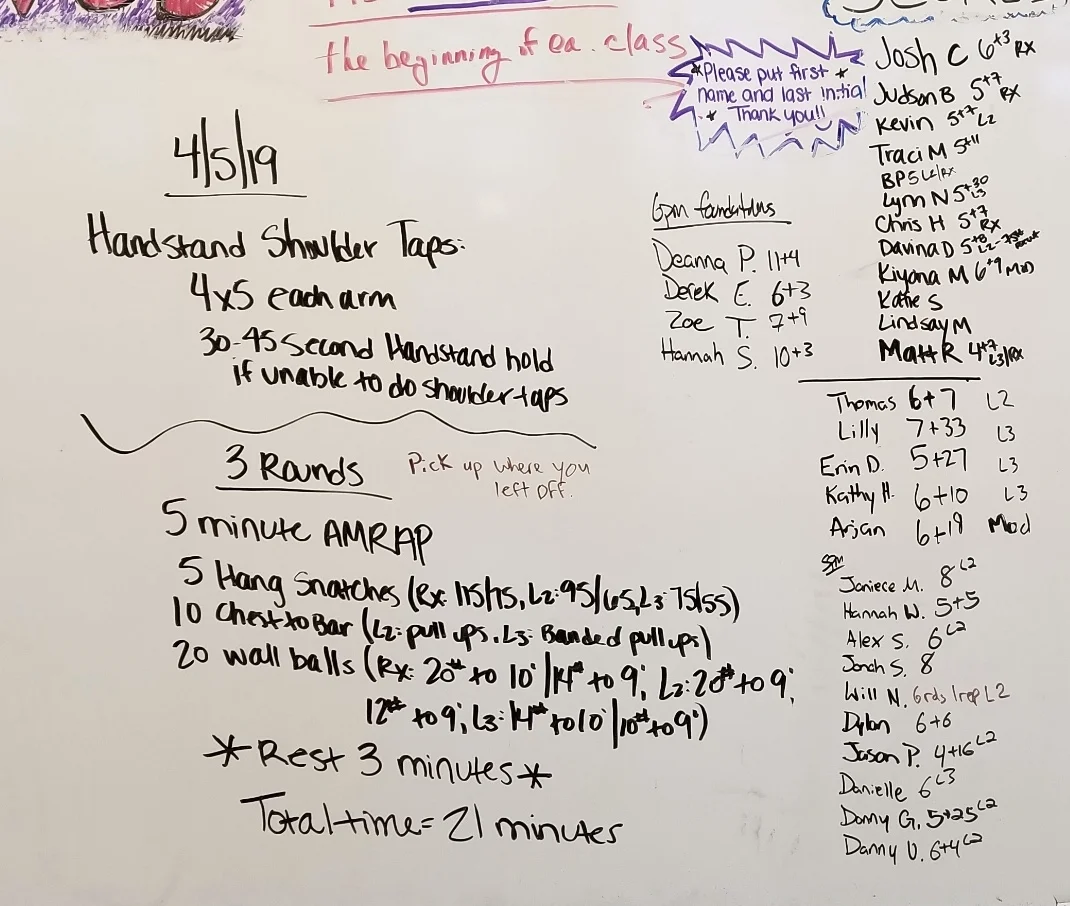 the beginning of ea. class
*Please put first *
name and last initial
* Thank you!!
4/5/19
Handstand Shoulder Taps:
4x5 each arm
30-45 Second Handstand hold
if unable to do shoulder taps
3 Rounds
Pick up where you
left off.
5 minute AMRAP
5 Hang Snatches (Rx: 115/75, L2: 95/65, L3: 75/55)
10 Chest to Bar (L2: pull ups, L3: Banded pull ups)
20 wall balls (Rx: 20# to 10' | 14# to 9', L2: 20# to 9',
12# to 9', L3: 14# to 10' | 10# to 9')
*Rest 3 minutes*
Total time = 21 minutes
6pm foundations
Deanna P. 11+4
Derek E. 6+3
Zoe T. 7+9
Hannah S. 10+3
Josh C 6+3 RX
Judson B 5+7 RX
Kevin 5+7 L2
Traci M 5+11
BP 5 L2/RX
Lynn N 5+30 L3
Chris H 5+7 RX
Davina D 5+8 L2-75#
Kiyana M 6+9 MOD
Katie S
Lindsay M
Matt R 4+7 L3/RX
Thomas 6+7 L2
Lilly 7+33 L3
Erin D. 5+27 L3
Kathy H. 6+10 L3
Arjan 6+19 Mod
5pm
Janiece M. 8 L2
Hannah W. 5+5
Alex S. 6 L2
Jonah S. 8
Will N. 6rds 1rep L2
Dylan 6+6
Jason P. 4+16 L2
Danielle 6 L3
Donny G. 5+25 L2
Danny V. 6+4 L2